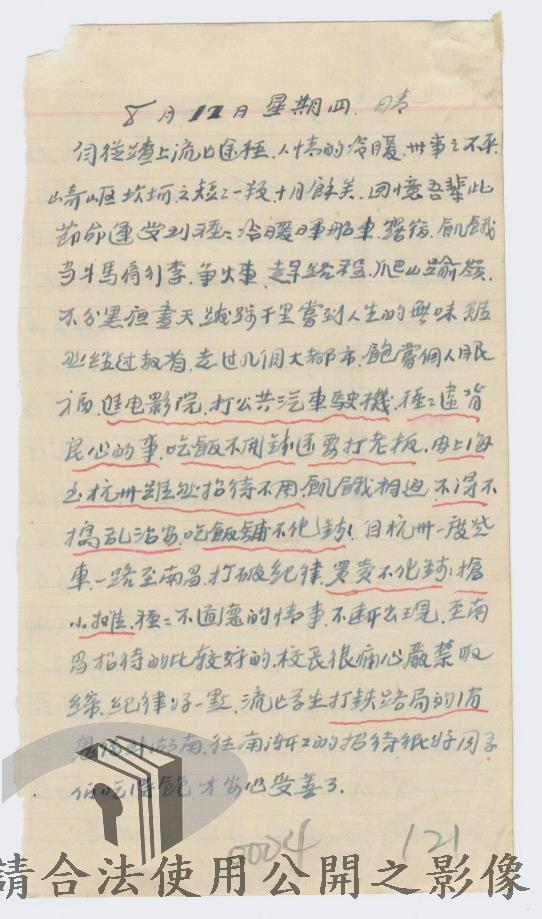 8月12日星期四 晴
们從踏上流亡途程.人情的冷暖.世事之不平
崎岖坎坷之短二一段十月餘关.回憶吾輩此
節命運受到種二冷暖日車船車.露宿.飢餓
当斗馬停行李.爭火車.走旱路程.爬山踰嶺.
不分黑夜晝天跋跨千里嘗到人生的無味 雖
然经过数省.走过几個大都市.飽嘗個人眼
福.進电影院.打公共汽車駛機.種二違背
民心的事.吃飯不用錢还要打老板.由上海
至杭州雖然招待不周.飢餓相迫.不得不
搗乱治安.吃飯舖不化錢!自杭州一度登
車.一路至南昌.打破紀律.買賣不化錢:搶
小攤.種二不道意的情事.不断出現.至南
昌招待的比較好的.校长很痛心嚴禁取
缔.紀律好一點.流亡学生打铁路局的消
湖南.往南浙江的招待纸好同学
们吃得飽.才安心受善了.
0004 121
請合法使用公開之影像